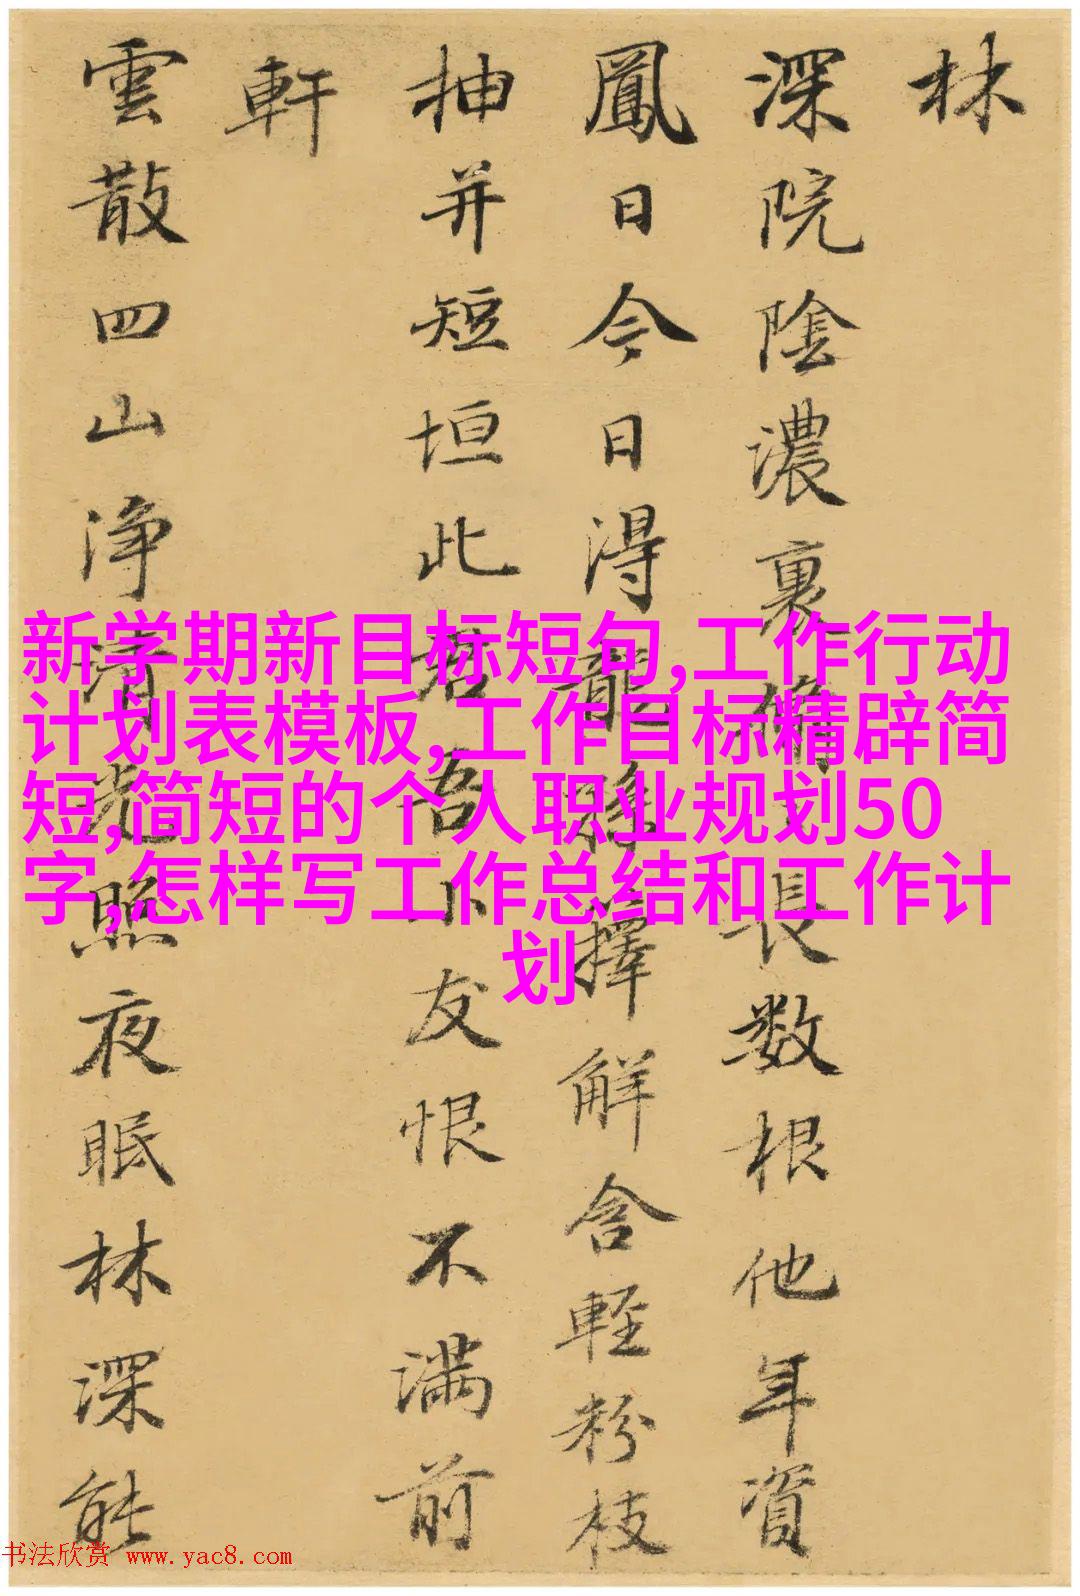 林
深院陰濃裏脩長数根他年資
鳳日今日得龍孫籜解含輕粉枝
抽并短垣此君吾小友恨不満前
軒
雲散四山净清光照夜眠林深能
新学期新目标短句,工作行动
计划表模板,工作目标精辟简
短,简短的个人职业规划50
字,怎样写工作总结和工作计
划
书法欣赏 www.yac8.com